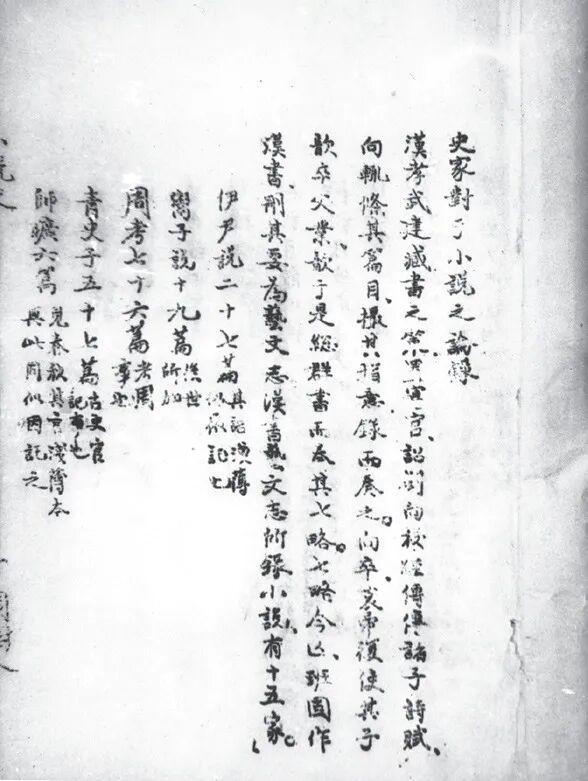 史家對于小説之論錄
漢孝武建藏書之策置寫官、詔劉向校經傳諸子詩賦、
向輒條其篇目、撮其指意錄而奏之。向卒哀帝復使其子
歆卒父業、歆于是總群書而奏其七略。七略今亡、班固作
漢書、刪其要為藝文志漢書藝文志所錄小説有十五家。
伊尹説二十七篇 其語淺薄似依託也
鬻子説十九篇 後世所加
周考七十六篇 考周事也
青史子五十七篇 古史官記事也
師曠六篇 見春秋其言淺薄本與此同似因託之